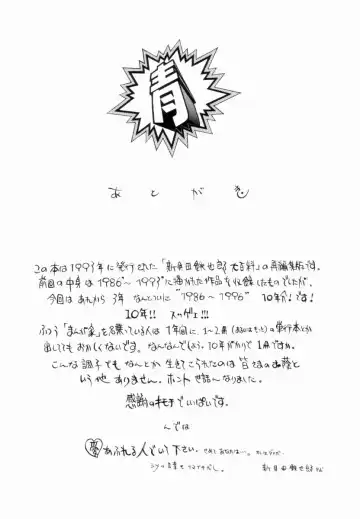 青
あとがき
この本は1993年に発行された「新貝田鉄也郎 大百科」の再編集版です。
前回の中身は"1986"〜"1993"に描かれた作品を収録したものでしたが、
今回はあれから3年 なんとついに"1986〜1996" 10年分!です!
10年!! スッゲェ!!!
ふつう「まんが家」を名乗っている人は1年間に、1〜2冊の単行本とか
出してもおかしくないです。なんなんでしょう、10年がかりで1冊ですか。
こんな調子でもなんとか生きてこられたのは皆さまのお蔭と
いう他ありません。ホント お世話んなりました。
感謝のキモチでいっぱいです。
んでは
夢あふれる人でいて下さい。
新貝田鉄也郎